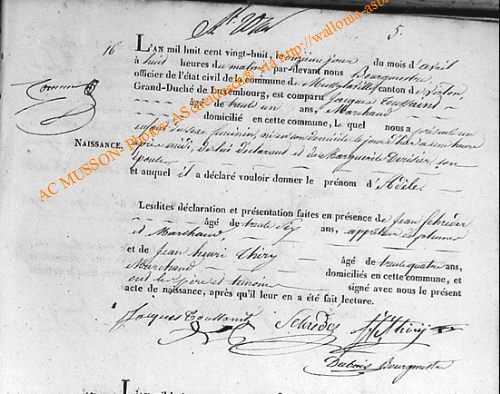 5.
16
L'AN mil huit cent vingt-huit, le onzième jour du mois d'avril
à huit heures du matin par-devant nous Bourgmestre,
officier de l'état civil de la commune de canton de Virton
Grand-Duché de Luxembourg, est comparu Jacques Toussaint
âgé de trente un ans, Marchand
domicilié en cette commune, lequel nous a présenté un
NAISSANCE.
enfant du sexe féminin, né en son domicile le jour à une heure
après midi, de lui déclarant et de Marguerite son
épouse
et auquel il a déclaré vouloir donner le prénom d'Adèle.
Lesdites déclaration et présentation faites en présence de Jean Schreder
âgé de trente six ans,
et Marchand
et de Jean henri Thiry âgé de trente quatre ans,
Marchand domiciliés en cette commune, et
ont le père et témoins signé avec nous le présent
acte de naissance, après qu'il leur en a été fait lecture.
Jacques Toussaint Schreder Thiry
Dubois Bourgmestre
AC MUSSON- Photos AScaillet.be via http://wallonia-asb